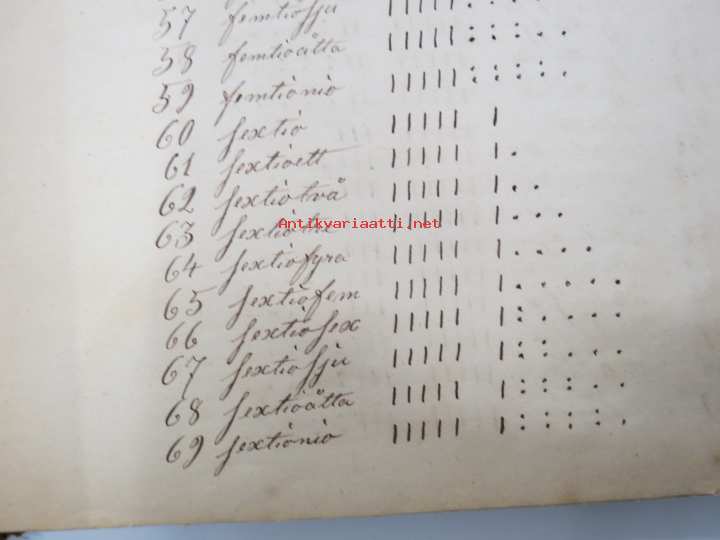 57 femtiosju
58 femtioåtta
59 femtionio
60 sextio
61 sextioett
62 sextiotvå
63 sextiotre
Antikyariaatti.net
64 sextiofyra
65 sextiofem
66 sextiosex
67 sextiosju
68 sextioåtta
69 sextionio